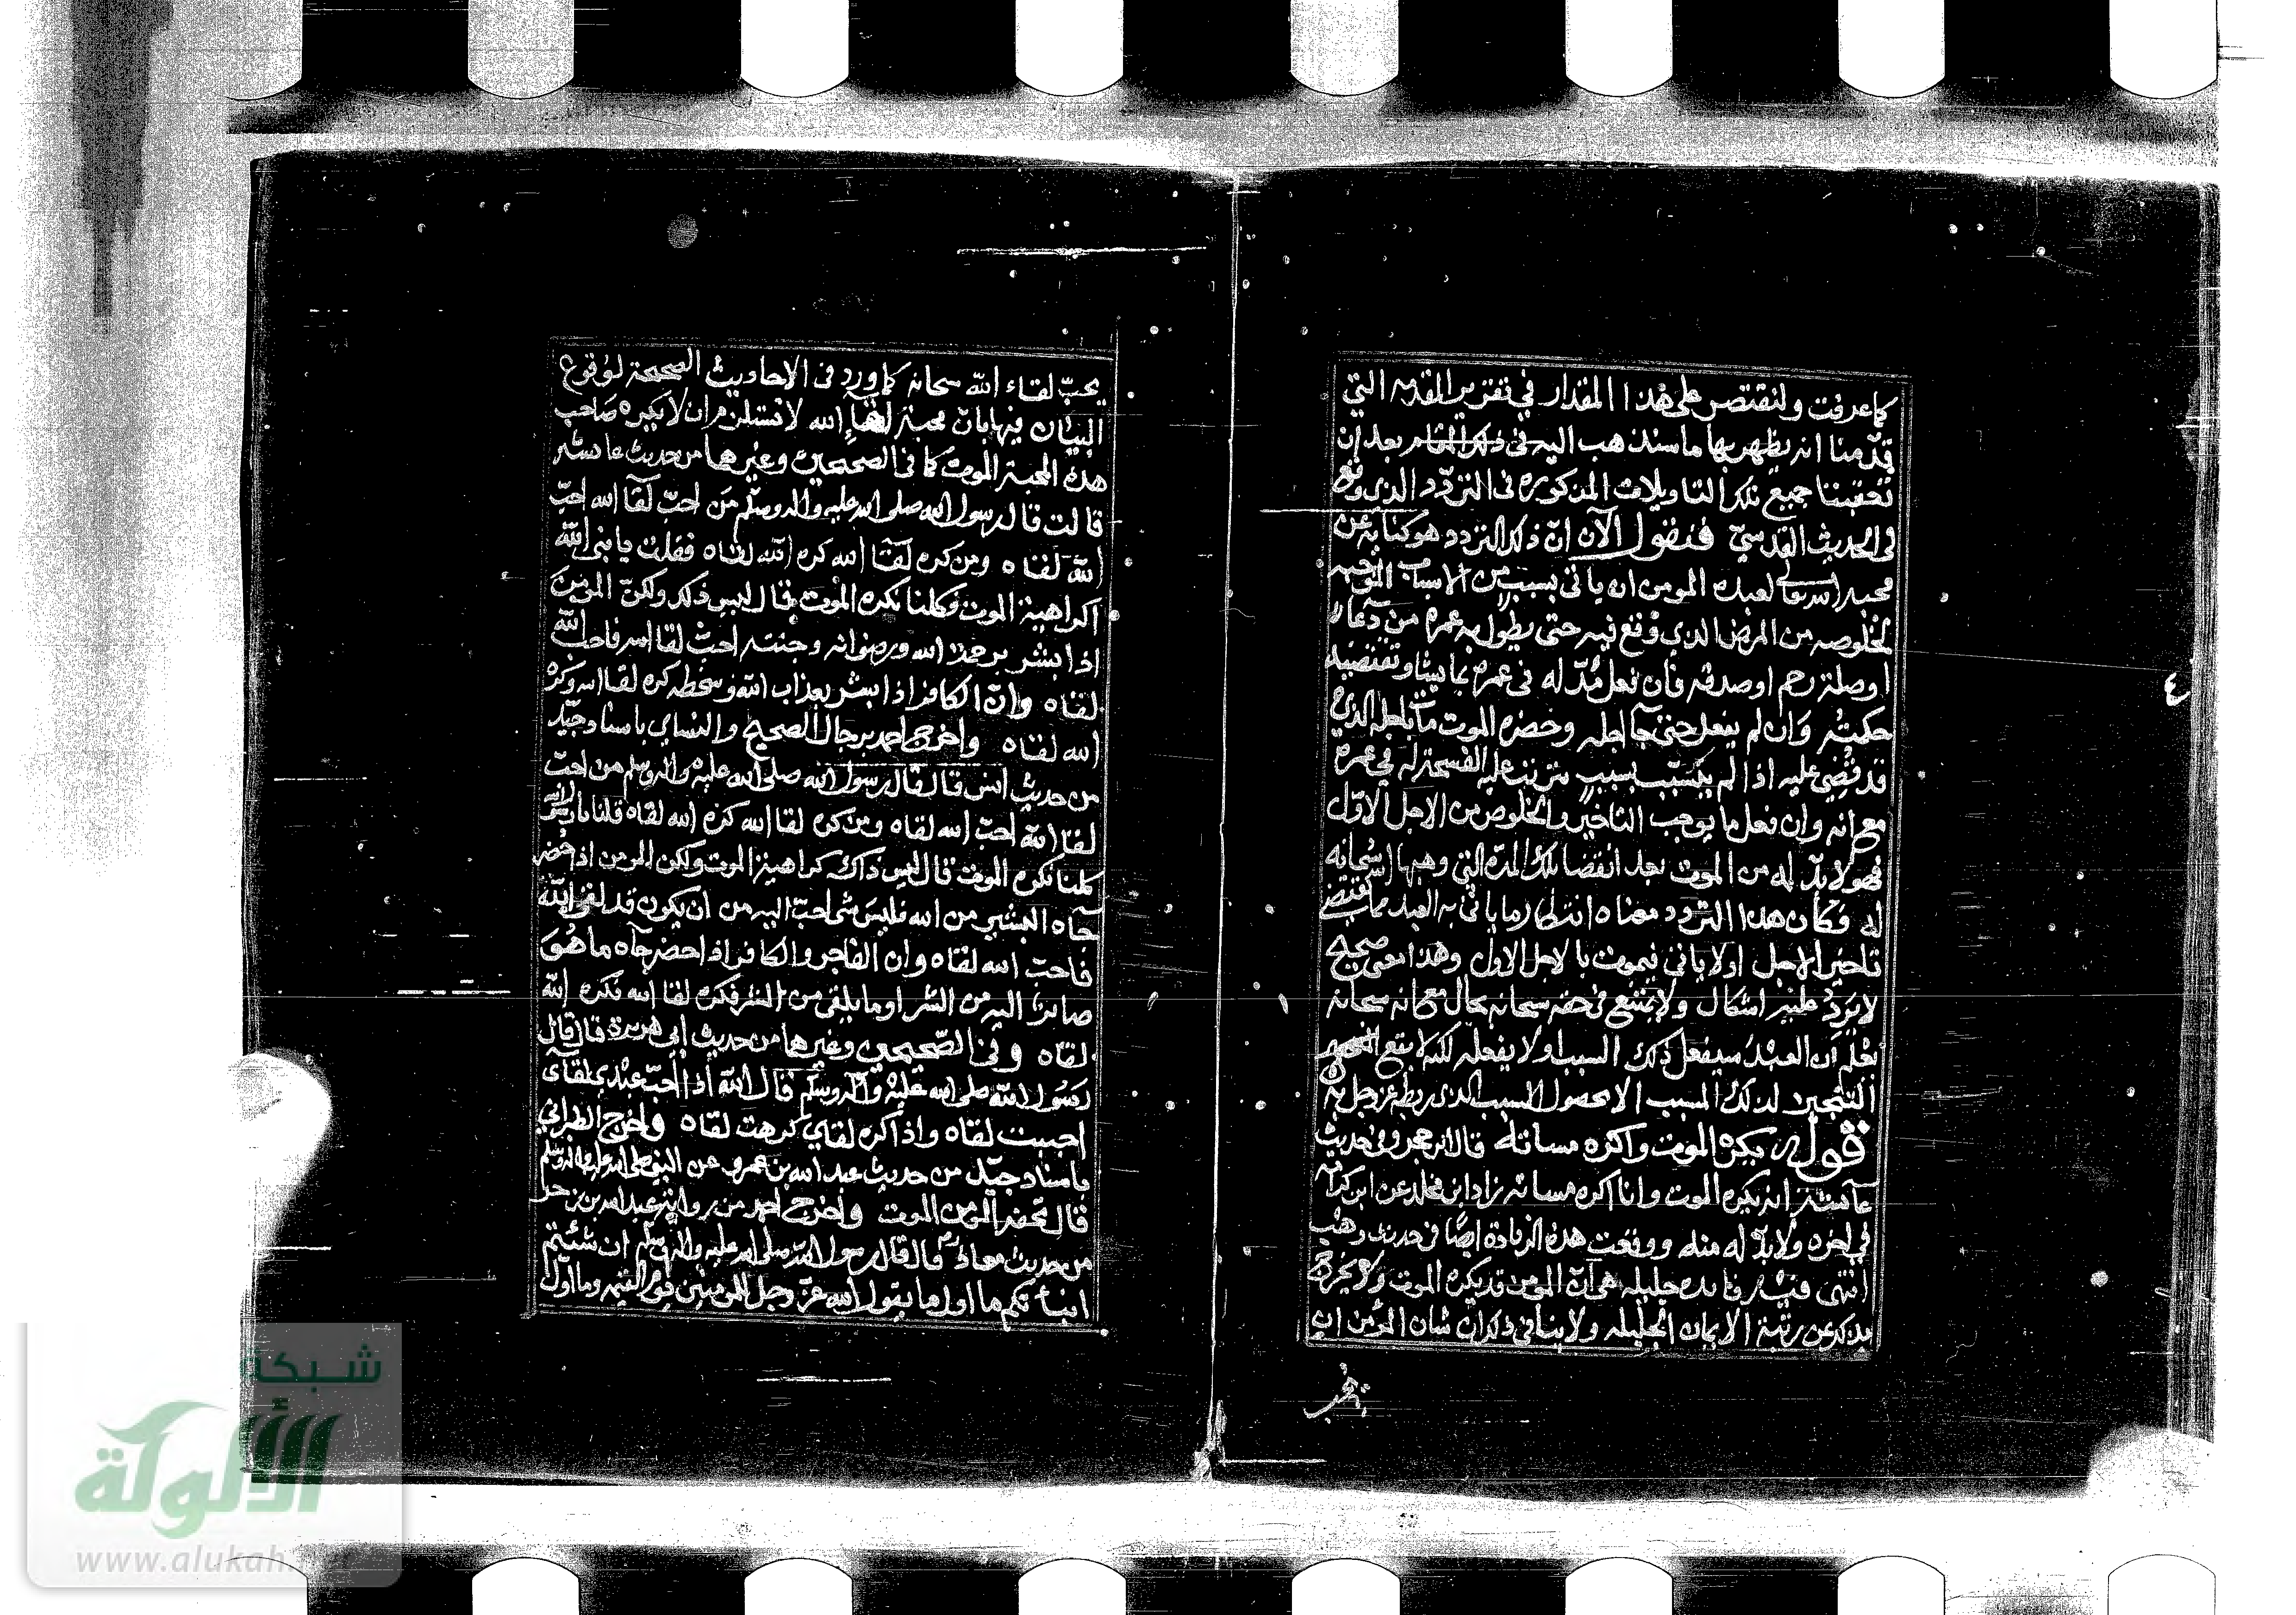 كما عرفت ولنقتصر على هذا المقدار في تقرير المقدمه التي
قدمنا انه يظهر بها ما سنذهب اليه في بعد ان
تحقبنا جميع تلك التاويلات المذكوره في التردد الذي وقع
في الحديث القدسي فنقول الآن ان ذلك التردد هو كنايه عن
محبه الله تعالى لعبده المومن ان ياتي بسبب من الاسباب الموجبه
لخلوصه من المرض الذي وقع فيه حتى يطول به عمره من دعاء
او صلة رحم او صدقه فان فعل مد له في عمره بما يشا وتقتضيه
حكمته وان لم يفعل حتى جا اجله وحضره الموت مات باجله الذي
قد قضي عليه اذا لم يتسبب بسبب يترتب عليه الفسحة له في عمره
مع انه وان فعل ما يوجب التاخير والخلوص من الاجل الاول
فهو لا بد له من الموت بعد انقضا تلك المدة التي وهبها الله سبحانه
له فكان هذا التردد معناه انتظار ما ياتي به العبد مما يقتضي
تاخير الاجل او لا ياتي فيموت بالاجل الاول وهذا معنى صحيح
لا يرد عليه اشكال ولا يمتنع في حقه سبحانه بحال مع انه سبحانه
يعلم ان العبد سيفعل ذلك السبب او لا يفعله لكنه لا يقع التنجيز
لذلك المسبب الا بحصول السبب الذي ربطه عز وجل به
قوله يكره الموت واكره مساته قال ابن حجر وفي حديث
عائشة انه يكره الموت وانا اكره مساته زاد ابن مخلد عن ابن كرامه
في اخره ولا بد له منه ووقعت هذه الزيادة ايضا في حديث وهب
انتهى فيه فايده جليله هي ان المومن قد يكره الموت ولا يخرج
بذلك عن رتبة الايمان الجليله ولا ينافي ذلك ان شان المؤمن ان
يحب
يحب لقاء الله سبحانه كما ورد في الاحاديث الصحيحة لوقوع
البيان فيها بان محبة لقاء الله لا تستلزم ان لا يكره صاحب
هذه المحبة الموت كما في الصحيحين وغيرهما من حديث عائشه
قالت قال رسول الله صلى الله عليه واله وسلم من احب لقآ الله احب
الله لقاه ومن كره لقآ الله كره الله لقاه فقلت يا نبي الله
اكراهية الموت فكلنا نكره الموت قال ليس ذلك ولكن المومن
اذا بشر برحمة الله ورضوانه وجنته احب لقا الله فاحب الله
لقاه وان الكافر اذا بشر بعذاب الله وسخطه كره لقا الله وكره
الله لقاه واخرج احمد برجال الصحيح والنساي باسناد جيد
من حديث انس قال قال رسول الله صلى الله عليه واله وسلم من احب
لقا الله احب الله لقاه ومن كره لقا الله كره الله لقاه قلنا يا رسول الله
كلنا نكره الموت قال ليس ذاك كراهية الموت ولكن المومن اذا حضر
جاه البشير من الله فليس شي احب اليه من ان يكون قد لقي الله
فاحب الله لقاه وان الفاجر والكافر اذا احضر جآه ما هو
صائر اليه من الشر او ما يلقى من الشر فكره لقا الله فكره الله
لقاه وفي الصحيحين وغيرهما من حديث أبي هريرة قال قال
رسول الله صلى الله عليه واله وسلم قال الله اذا احب عبدي لقآى
احببت لقاه واذا كره لقاي كرهت لقاه واخرج الطبراني
باسناد جيد من حديث عبد الله بن عمرو عن النبي صلى الله عليه واله وسلم
قال تحفة المومن الموت واخرج احمد من رواية عبد الله بن زحر
من حديث معاذ قال قال رسول الله صلى الله عليه واله وسلم ان شئتم
انبأتكم ما اول ما يقول الله عز وجل للمومنين يوم القيمه وما اول
٤
شبكة
الألوكة
www.alukah